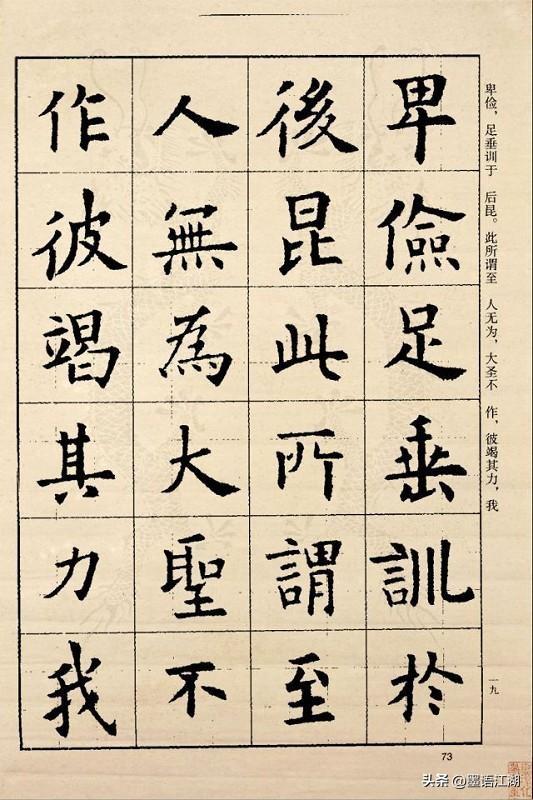 卑儉足垂訓於
後昆此所謂至
人無為大聖不
作彼竭其力我
卑俭，足垂训于 后昆。此所谓至 人无为，大圣不 作，彼竭其力，我
一九
73
头条@墨语江湖